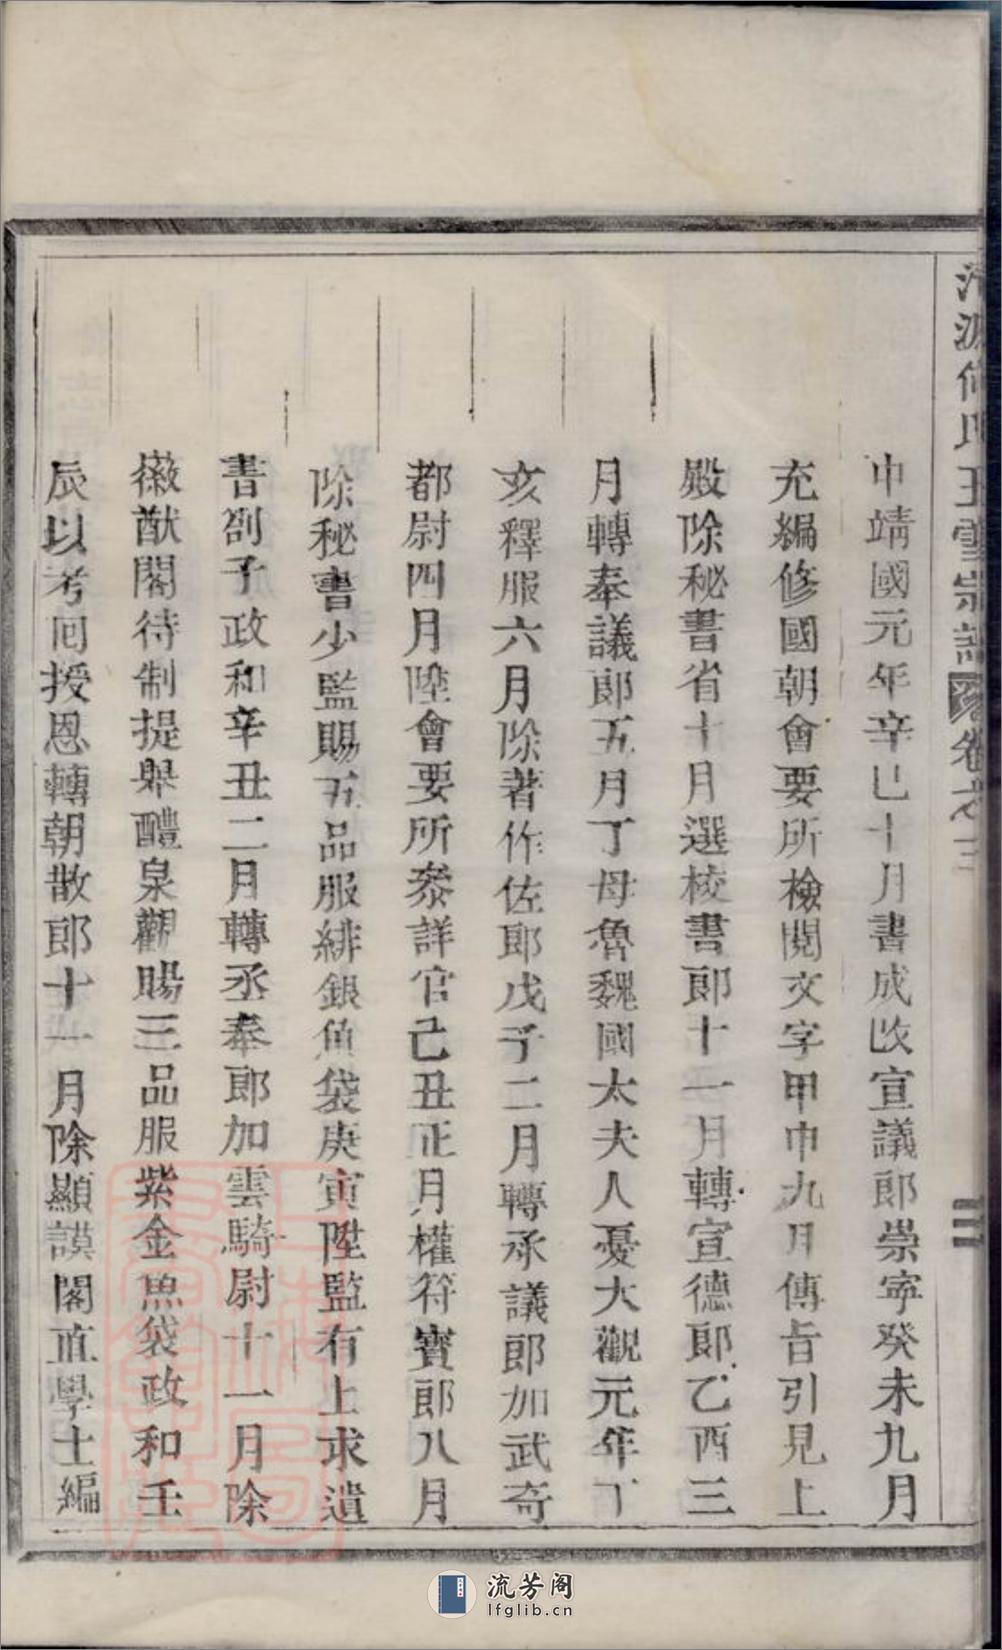 中靖國元年辛巳十月書成改宣議郎崇寧癸未九月
充編修國朝會要所檢閱文字甲申九月傳旨引見上
殿除秘書省十月選校書郎十一月轉宣德郎乙酉三
月轉奉議郎五月丁母魯魏國太夫人憂大觀元年丁
亥釋服六月除著作佐郎戊子二月轉承議郎加武奇
都尉四月陞會要所叅詳官己丑正月權符寶郎八月
除秘書少監賜五品服緋銀魚袋庚寅陞監有上求遺
書劄子政和辛丑二月轉丞奉郎加雲騎尉十一月除
徽猷閣待制提舉醴泉觀賜三品服紫金魚袋政和壬
辰以考囘授恩轉朝散郎十一月除顯謨閣直學士編
流芳阁
lfglib.cn